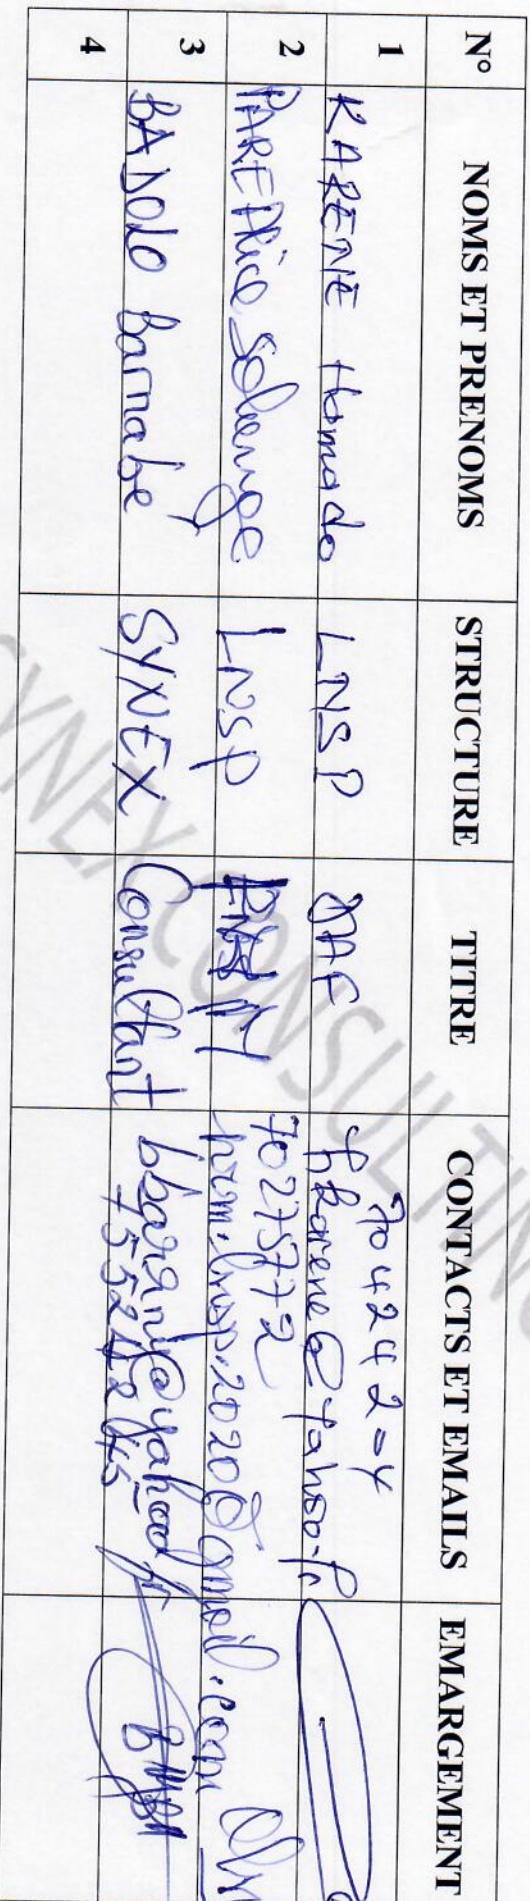 N° NOMS ET PRENOMS STRUCTURE TITRE CONTACTS ET EMAILS EMARGEMENT
1 KARENE Hamado LNSP DAF 704242 hkarene@yahoo.fr
2 PARE Alice Solange LNSP 70275772 hrm.lnsp.2020@gmail.com
3 BADOLO Barnabe SYNEX Consultant
4
SYNEX CONSULTING